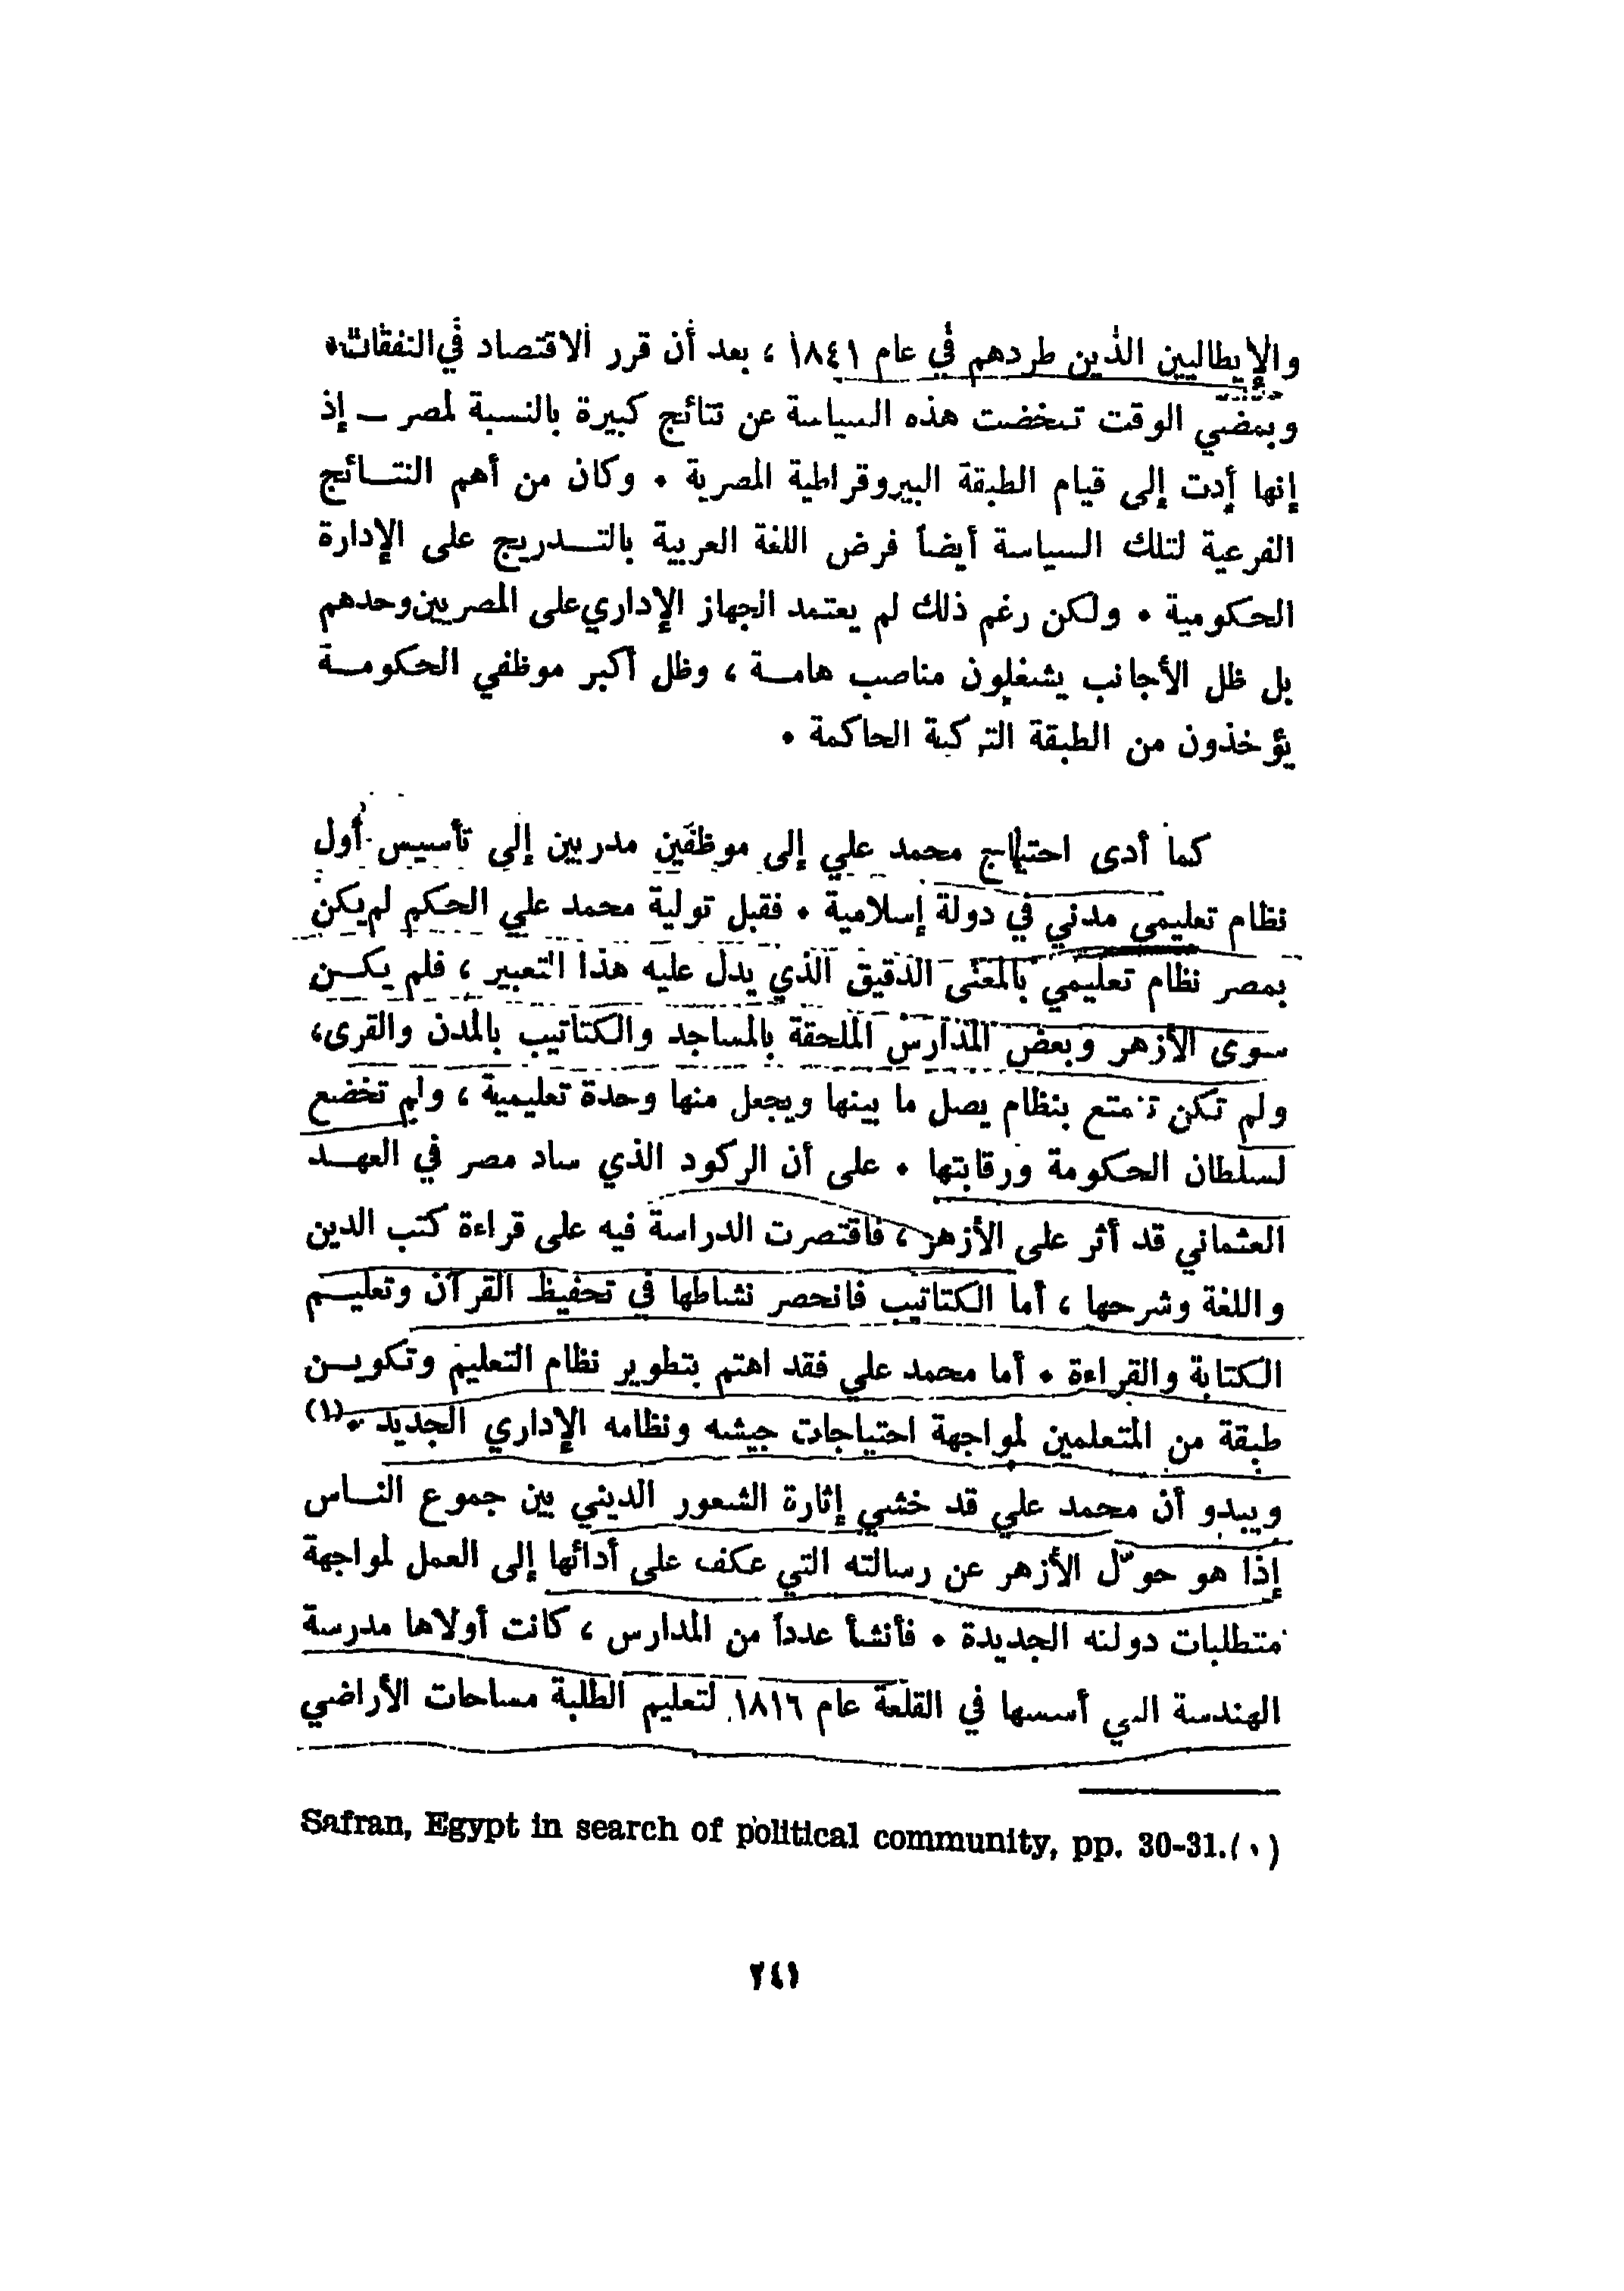 والإيطاليين الذين طردهم في عام ١٨٤١ ، بعد أن قرر الاقتصاد في النفقات .
وبمضي الوقت تمخضت هذه السياسة عن نتائج كبيرة بالنسبة لمصر ــ إذ
إنها أدت إلى قيام الطبقة البيروقراطية المصرية . وكان من أهم النتائج
الفرعية لتلك السياسة أيضاً فرض اللغة العربية بالتدريج على الإدارة
الحكومية . ولكن رغم ذلك لم يعتمد الجهاز الإداري على المصريين وحدهم
بل ظل الأجانب يشغلون مناصب هامة ، وظل أكبر موظفي الحكومة
يؤخذون من الطبقة التركية الحاكمة .
كما أدى احتياج محمد علي إلى موظفين مدربين إلى تأسيس أول
نظام تعليمي مدني في دولة إسلامية . فقبل تولية محمد علي الحكم لم يكن
بمصر نظام تعليمي بالمعنى الدقيق الذي يدل عليه هذا التعبير ، فلم يكن
سوى الأزهر وبعض المدارس الملحقة بالمساجد والكتاتيب بالمدن والقرى ،
ولم تكن تتمتع بنظام يصل ما بينها ويجعل منها وحدة تعليمية ، ولم تخضع
لسلطان الحكومة ورقابتها . على أن الركود الذي ساد مصر في العهد
العثماني قد أثر على الأزهر ، فاقتصرت الدراسة فيه على قراءة كتب الدين
واللغة وشرحها ، أما الكتاتيب فانحصر نشاطها في تحفيظ القرآن وتعليم
الكتابة والقراءة . أما محمد علي فقد اهتم بتطوير نظام التعليم وتكوين
طبقة من المتعلمين لمواجهة احتياجات جيشه ونظامه الإداري الجديد .(١)
ويبدو أن محمد علي قد خشي إثارة الشعور الديني بين جموع الناس
إذا هو حوّل الأزهر عن رسالته التي عكف على أدائها إلى العمل لمواجهة
متطلبات دولته الجديدة . فأنشأ عدداً من المدارس ، كانت أولاها مدرسة
الهندسة التي أسسها في القلعة عام ١٨١٦ لتعليم الطلبة مساحات الأراضي
Safran, Egypt in search of political community, pp. 30-31.(١)
٢٤١